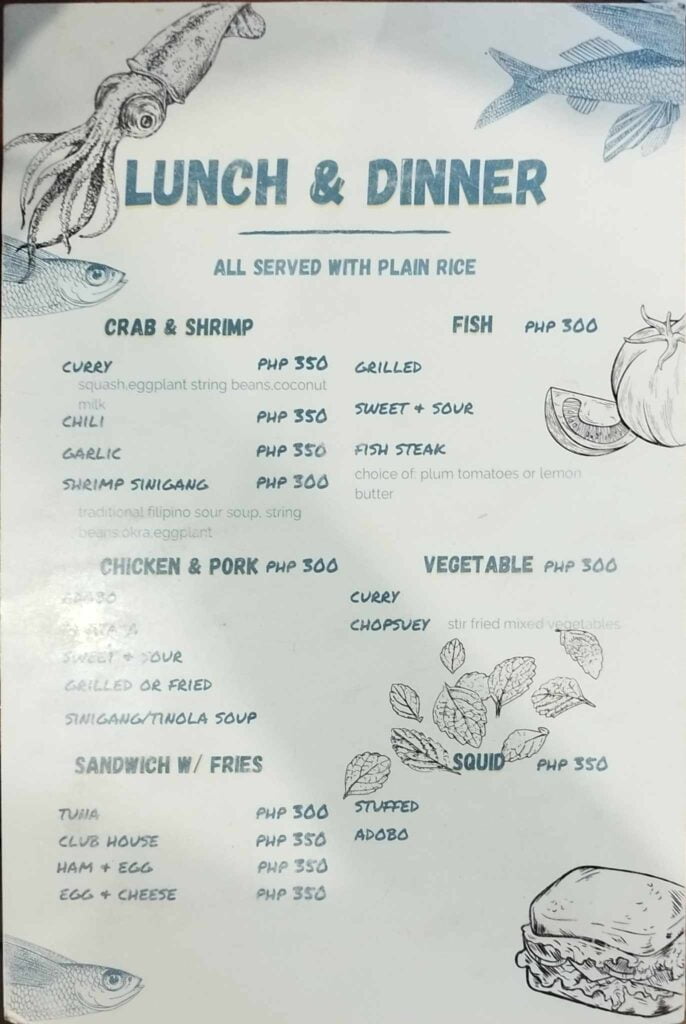 LUNCH & DINNER
ALL SERVED WITH PLAIN RICE
CRAB & SHRIMP
CURRY PHP 350
squash,eggplant string beans,coconut
milk
CHILI PHP 350
GARLIC PHP 350
SHRIMP SINIGANG PHP 300
traditional filipino sour soup, string
beans,okra,eggplant
FISH PHP 300
GRILLED
SWEET + SOUR
FISH STEAK
choice of: plum tomatoes or lemon
butter
CHICKEN & PORK PHP 300
ADOBO
SWEET + SOUR
GRILLED OR FRIED
SINIGANG/TINOLA SOUP
VEGETABLE PHP 300
CURRY
CHOPSUEY stir fried mixed vegetables
SANDWICH W/ FRIES
TUNA PHP 300
CLUB HOUSE PHP 350
HAM + EGG PHP 350
EGG + CHEESE PHP 350
SQUID PHP 350
STUFFED
ADOBO